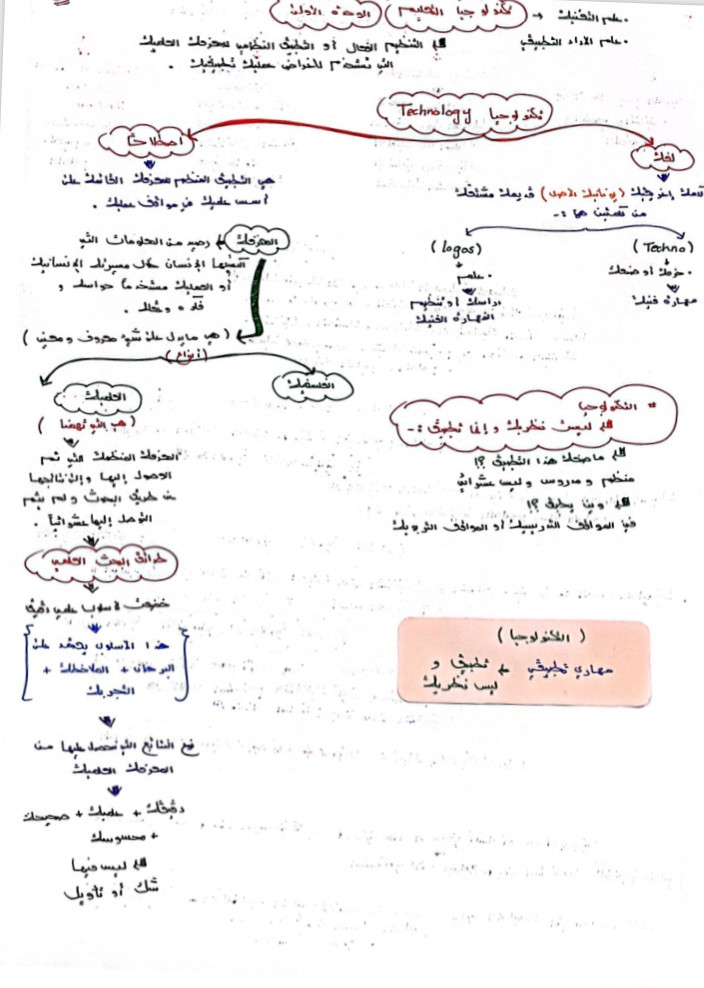 تكنولوجيا التعليم ( الوحدة الأولى
• علم التقنيات
• علم الأداء التطبيقي
التنظيم الفعال أو التطبيق النظامي للمعرفة العلمية
التي تستخدم لأغراض عملية تطبيقية .
تكنولوجيا Technology
لغة
كلمة إغريقية (يونانية الأصل) قديمة مشتقة
من كلمتين هما :-
(Techno)
• حرفة أو صنعة
مهارة فنية
(logos)
• علم
دراسة أو تنظيم
المهارة الفنية
اصطلاحاً
هي التطبيق المنظم للمعرفة القائمة على
أسس علمية في مواقف عملية .
المعرفة رصيد من المعلومات التي
اكتسبها الإنسان خلال مسيرته الإنسانية
أو العملية مستخدماً حواسه و
فكره وعقله .
( هي ما يدل على شيء معروف ومعين )
(أنواع)
الفلسفية
العلمية
( هي التي تهمنا )
المعرفة المنظمة التي تم
الوصول إليها وإلى نتائجها
عن طريق البحوث ولم يتم
التوصل إليها عشوائياً .
طرائق البحث العلمي
خضعت لأسلوب علمي دقيق
هذا الأسلوب يعتمد على
البرهان + الملاحظة +
التجربة
النتائج التي نحصل عليها من
المعرفة العلمية
دقيقة + علمية + صحيحة
+ محسوسة
ليس فيها
شك أو تأويل
" التكنولوجيا
ليست نظرية وإنما تطبيق :-
ما صفة هذا التطبيق ؟!
منظم ومدروس وليس عشوائي
وين يطبق ؟!
في المواقف التدريبية أو المواقف التربوية
( التكنولوجيا )
مهاري تطبيقي + تطبيق و
ليس نظرية